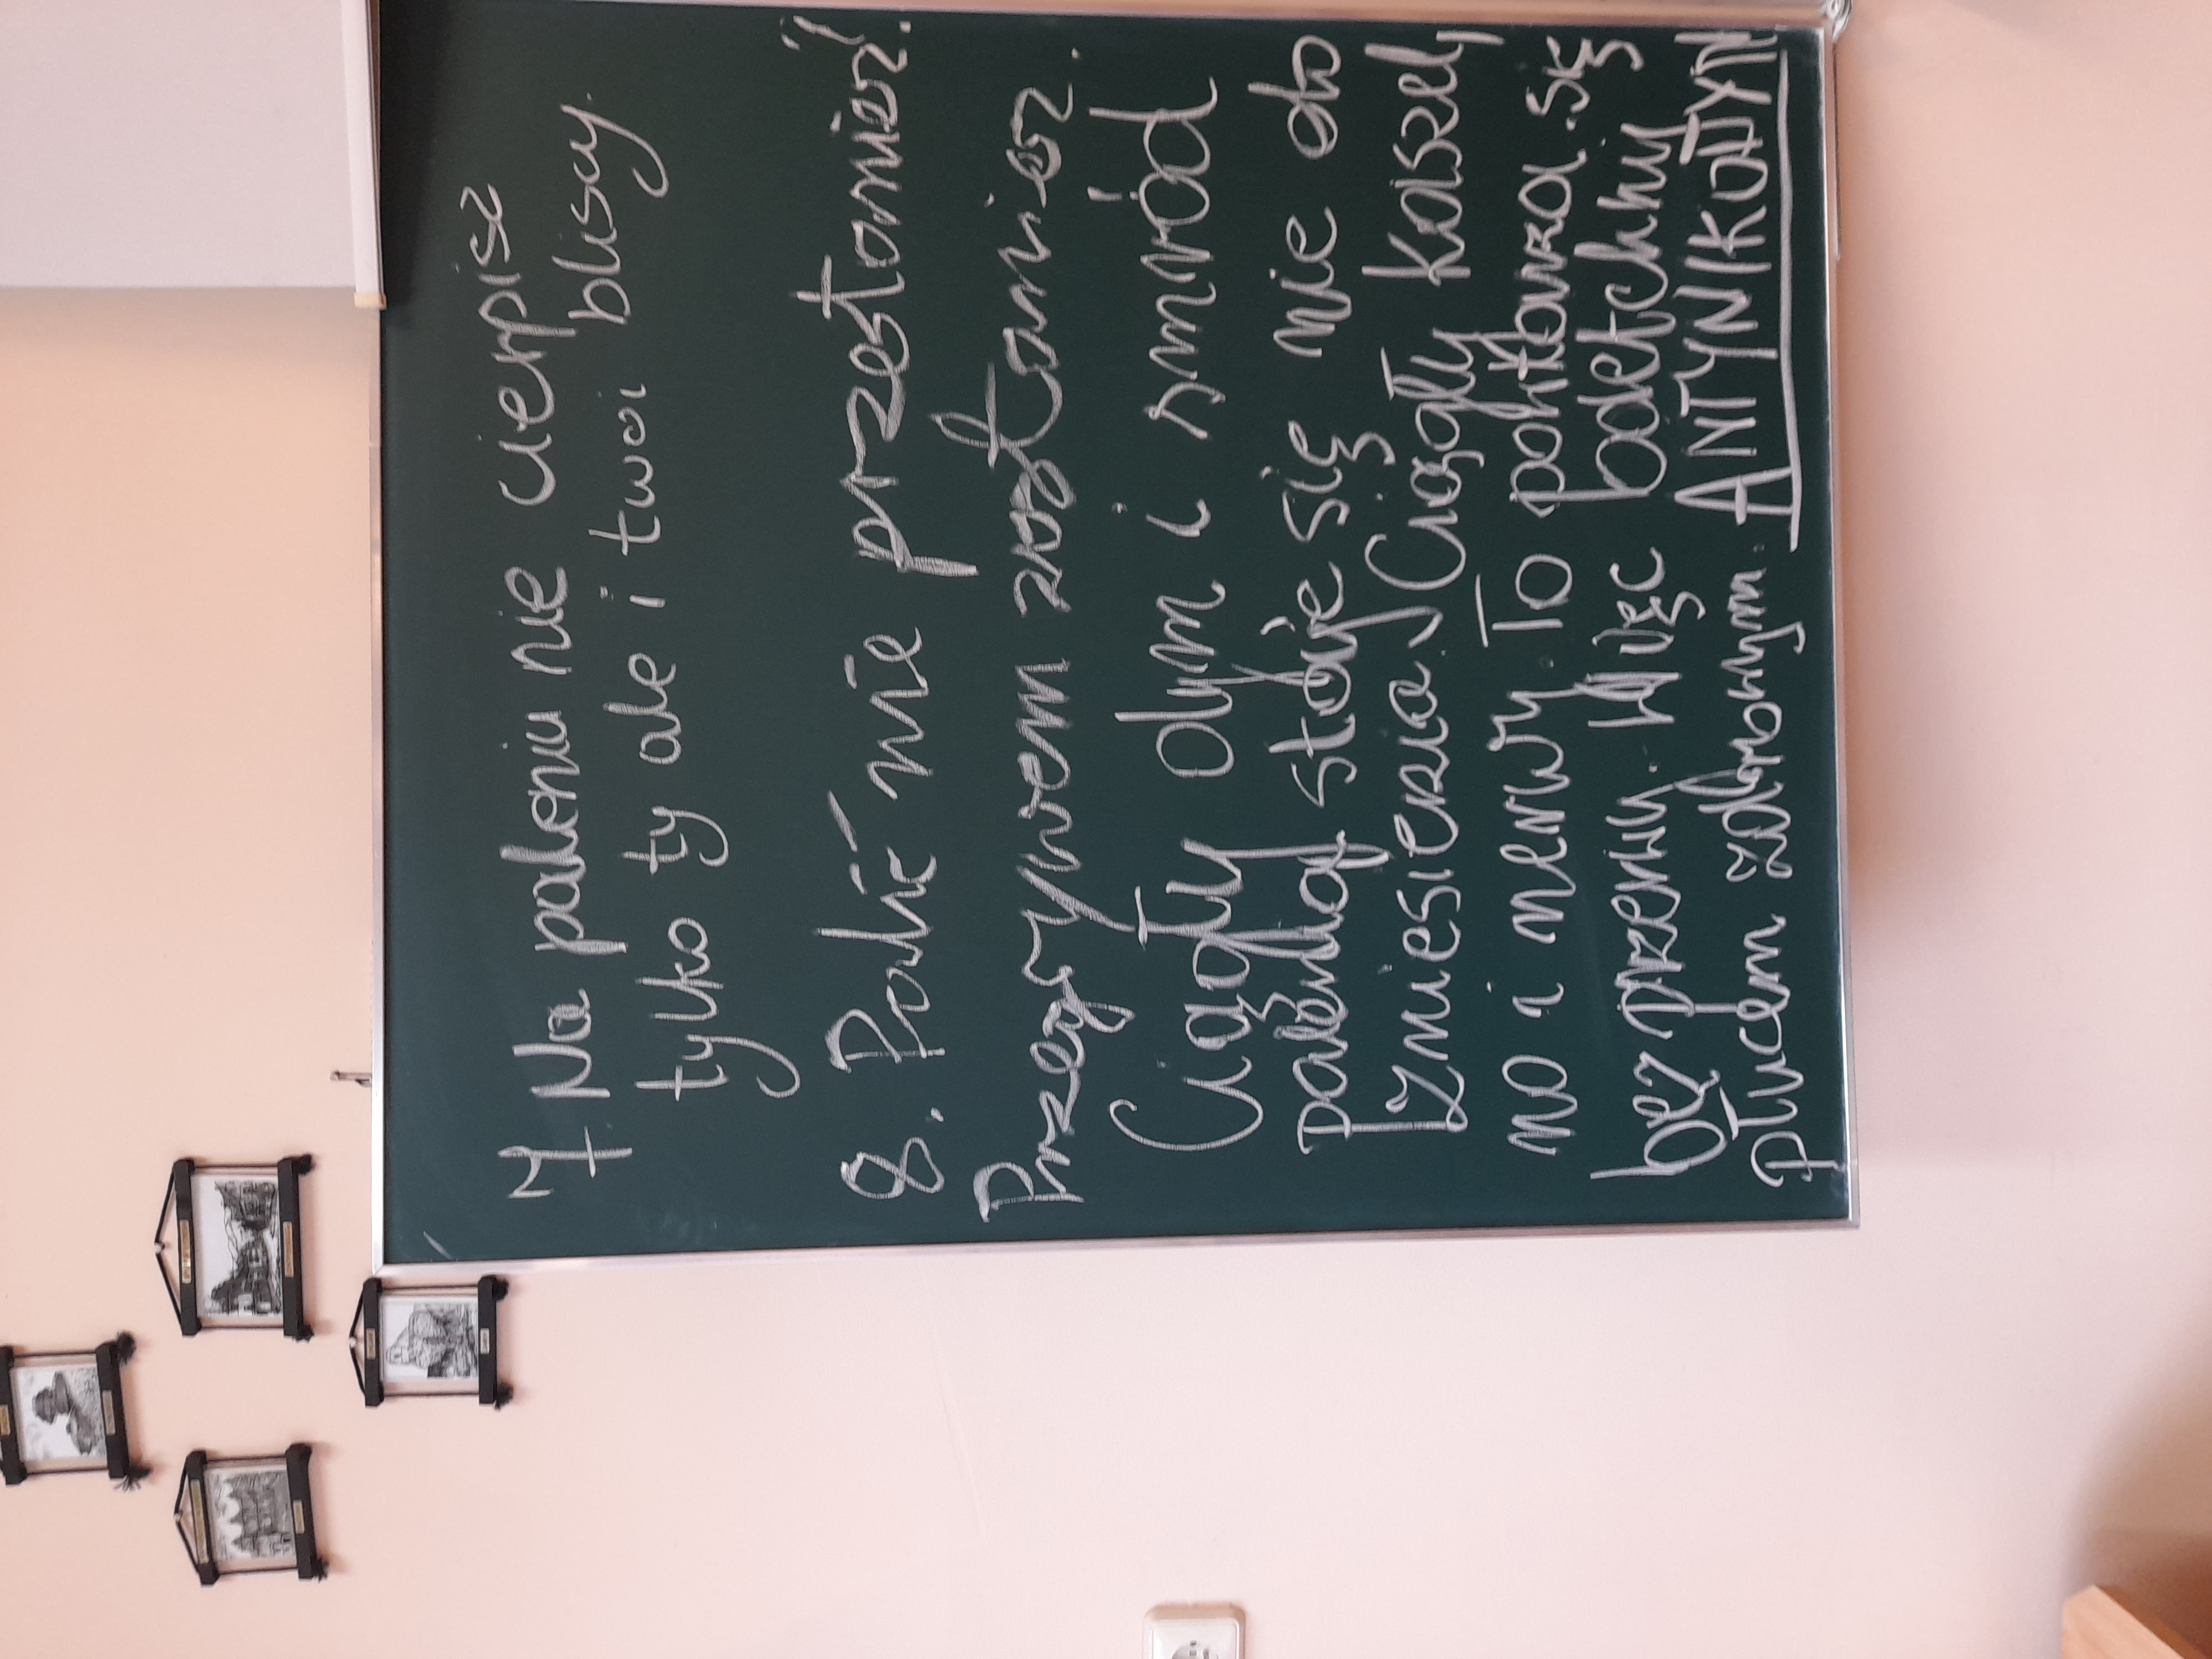 7 Na paleniu nie cierpisz
tylko ty ale i twoi bliscy.
8. Palić nie przestaniesz?
Przegrywem zostaniesz.
Ciągły dym i smród
palenia staje się nie do
zniesienia, Ciągły kaszel,
no i nerwy. To powtarza się
bez przerwy. Więc odetchnij
płucem zdrowym. ANTYNIKOTYN